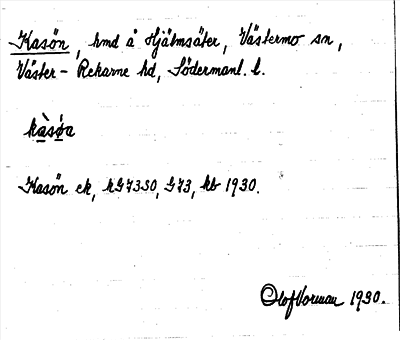 Kasön, hmd å Hjälmsäter, Västermo sn,
Väster-Rekarne hd, Södermanl. l.
kàsø̀a
Kasön ek, hG7350, G73, kb 1930.
Olof Vorman 1930.